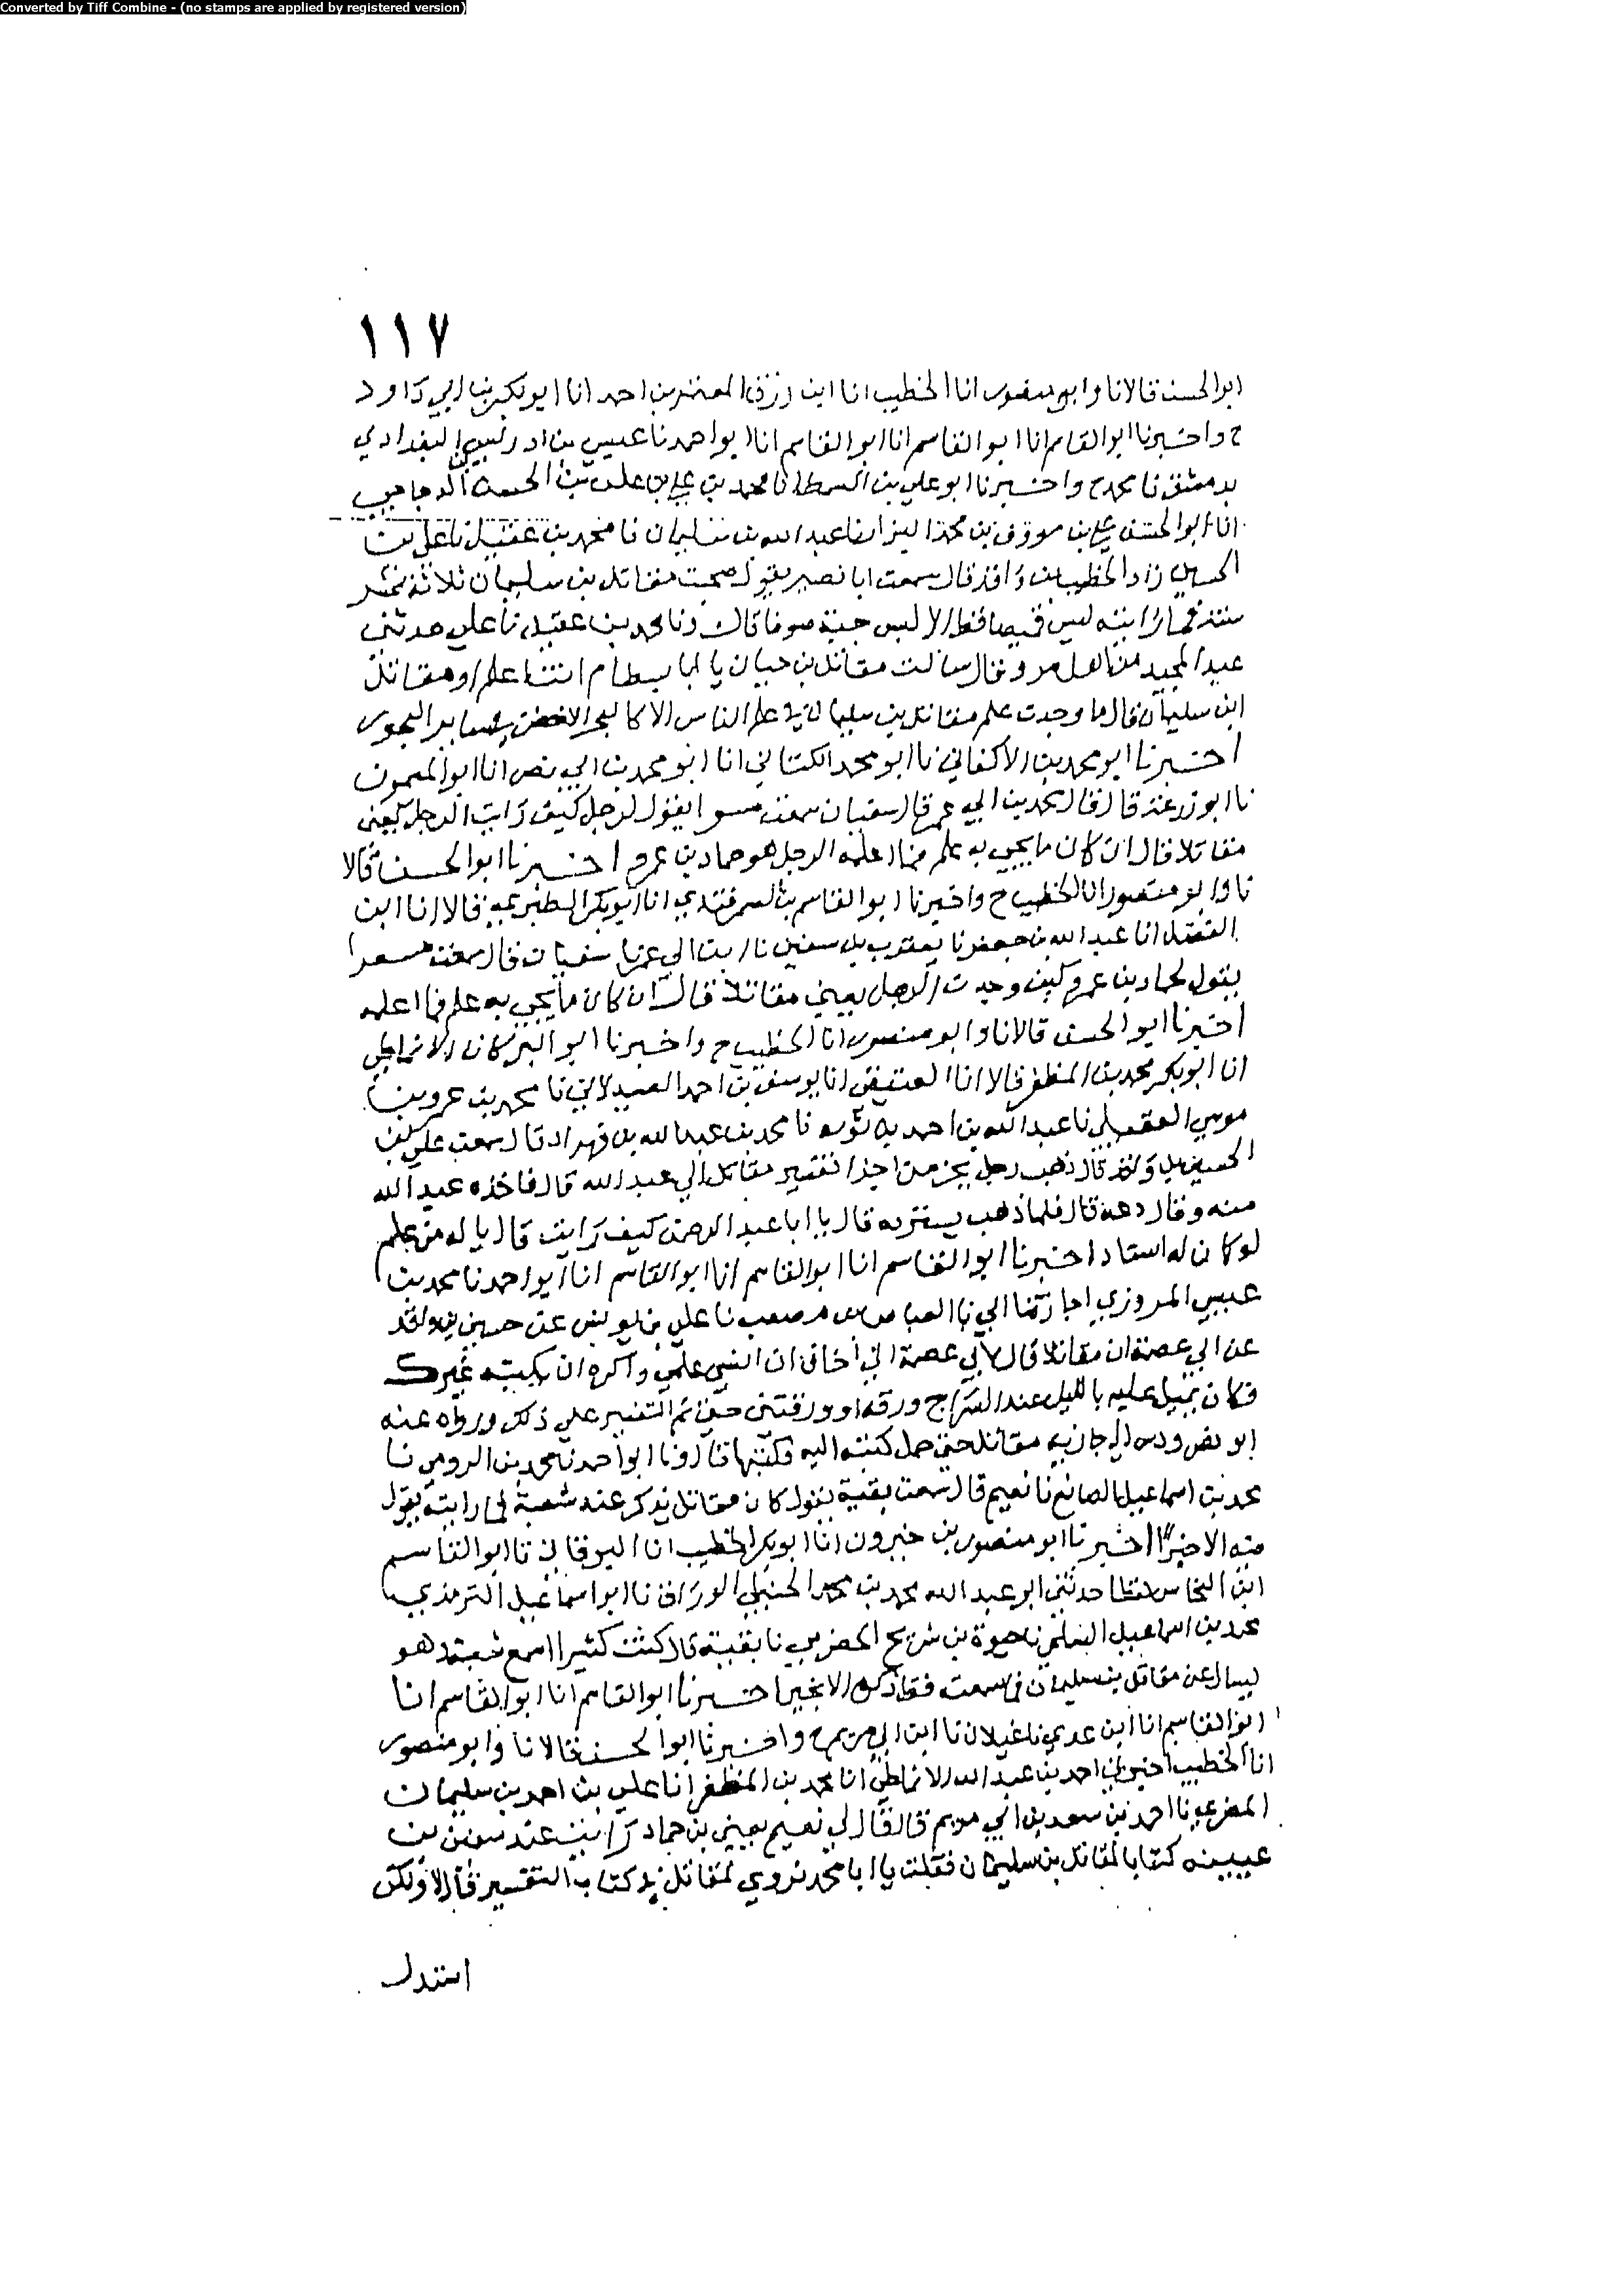 Converted by Tiff Combine - (no stamps are applied by registered version)
١١٧
ابو الحسن قالا نا وابو منصور انا الخطيب انا ابن رزق احمد انا ابو بكر بن ابي داود
ح واخبرنا ابو القاسم انا ابو القاسم انا ابو القاسم انا ابو احمد نا عيسى بن ادريس البغدادي
بدمشق نا محمد ح واخبرنا ابو علي بن السبط انا محمد بن علي بن علي بن الحسن الدجاجي
انا ابو الحسن علي بن محمد نا عبد الله بن سليمان نا محمد بن عقيل نا علي بن
الحسين زاد الخطيب بن واقد قال سمعت ابا نصير يقول صحبت مقاتل بن سليمان ثلاثة عشر
سنة فما رايته لبس قميصا قط الا لبس جبة صوفا قال ونا محمد بن عقيل نا علي حدثني
عبد المجيد من اهل مرو قال سالت مقاتل بن حيان يا ابا بسطام انت اعلم او مقاتل
ابن سليمان قال ما وجدت علم مقاتل بن سليمان في علم الناس الا كالبحر الاخضر في سائر البحور
اخبرنا ابو محمد بن الاكفاني نا ابو محمد الكتاني انا ابو محمد بن ابي نصر انا ابو الميمون
نا ابو زرعة قال قال محمد بن ابي عمر قال سفيان سمعت مسعرا يقول لرجل كيف رايت الرجل يعني
مقاتلا قال ان كان ما يجي به علم فما اعلمه الرجل هو حماد بن عمرو اخبرنا ابو الحسن قالا
نا وابو منصور انا الخطيب ح واخبرنا ابو القاسم بن السمرقندي انا ابو بكر الطبري قالا انا ابن
الفضل انا عبد الله بن جعفر نا يعقوب بن سفين نا ابن ابي عمر نا سفيان قال سمعت مسعرا
يقول لحماد بن عمرو كيف وجدت الرجل يعني مقاتلا قال ان كان ما يجي به علم فما اعلمه
اخبرنا ابو الحسن قالا نا وابو منصور انا الخطيب ح واخبرنا ابو البركات الانماطي
انا ابو بكر محمد بن المظفر قالا انا العتيقي انا يوسف بن احمد الصيدلاني نا محمد بن عمرو بن
موسى العقيلي نا عبد الله بن احمد بن نا محمد بن عبد الله بن قهزاد قال سمعت علي بن
الحسين بن واقد قال ذهب رجل بجزء من اجزا تفسير مقاتل الى عبد الله قال فاخذه عبد الله
منه وقال دعه قال فلما ذهب يسترده قال يا ابا عبد الرحمن كيف رايت قال يا له من علم
لو كان له اسناد اخبرنا ابو القاسم انا ابو القاسم انا ابو القاسم انا ابو احمد نا محمد بن
عيسى المروزي اجازة نا ابي نا العباس بن مصعب نا علي بن يونس عن حسين بن واقد
عن ابي عصمة ان مقاتلا قال لابي عصمة اني اخاف ان انسى علمي واكره ان يكتبه غيرك
فكان يملي عليه بالليل عند السراج ورقة او ورقتين حتى تم التفسير على ذلك ورواه عنه
ابو نصر جارية مقاتل حتى حمل كتبه اليه فكتبها قال ونا ابو احمد نا محمد بن الرومي نا
محمد بن اسماعيل الصائغ نا نعيم قال سمعت بقية يقول كان مقاتل يذكر عند شعبة فما رايته يقول
فيه الا خيرا اخبرنا ابو منصور بن خيرون انا ابو بكر الخطيب انا البرقاني نا ابو القاسم
ابن النخاس لفظا حدثني ابو عبد الله محمد بن محمد الحنبلي الوراق نا ابو اسماعيل الترمذي
محمد بن اسماعيل السلمي نا حيوة بن شريح الحضرمي نا بقية قال كنت كثيرا اسمع شعبة وهو
يسال عن مقاتل بن سليمان فما سمعت قط ذكره الا بخير اخبرنا ابو القاسم انا ابو القاسم انا
ابو القاسم انا ابن عدي نا غيلان نا ابن ابي مريم ح واخبرنا ابو الحسن قالا نا وابو منصور
انا الخطيب اخبرني احمد بن عبد الله الانماطي انا محمد بن المظفر انا علي بن احمد بن سليمان
المصري نا احمد بن سعد بن ابي مريم قال قال لي نعيم يعني بن حماد رايت عند سفين بن
عيينه كتابا لمقاتل بن سليمان فقلت يا ابا محمد تروي لمقاتل في كتاب التفسير قال لا ولكن
استدل